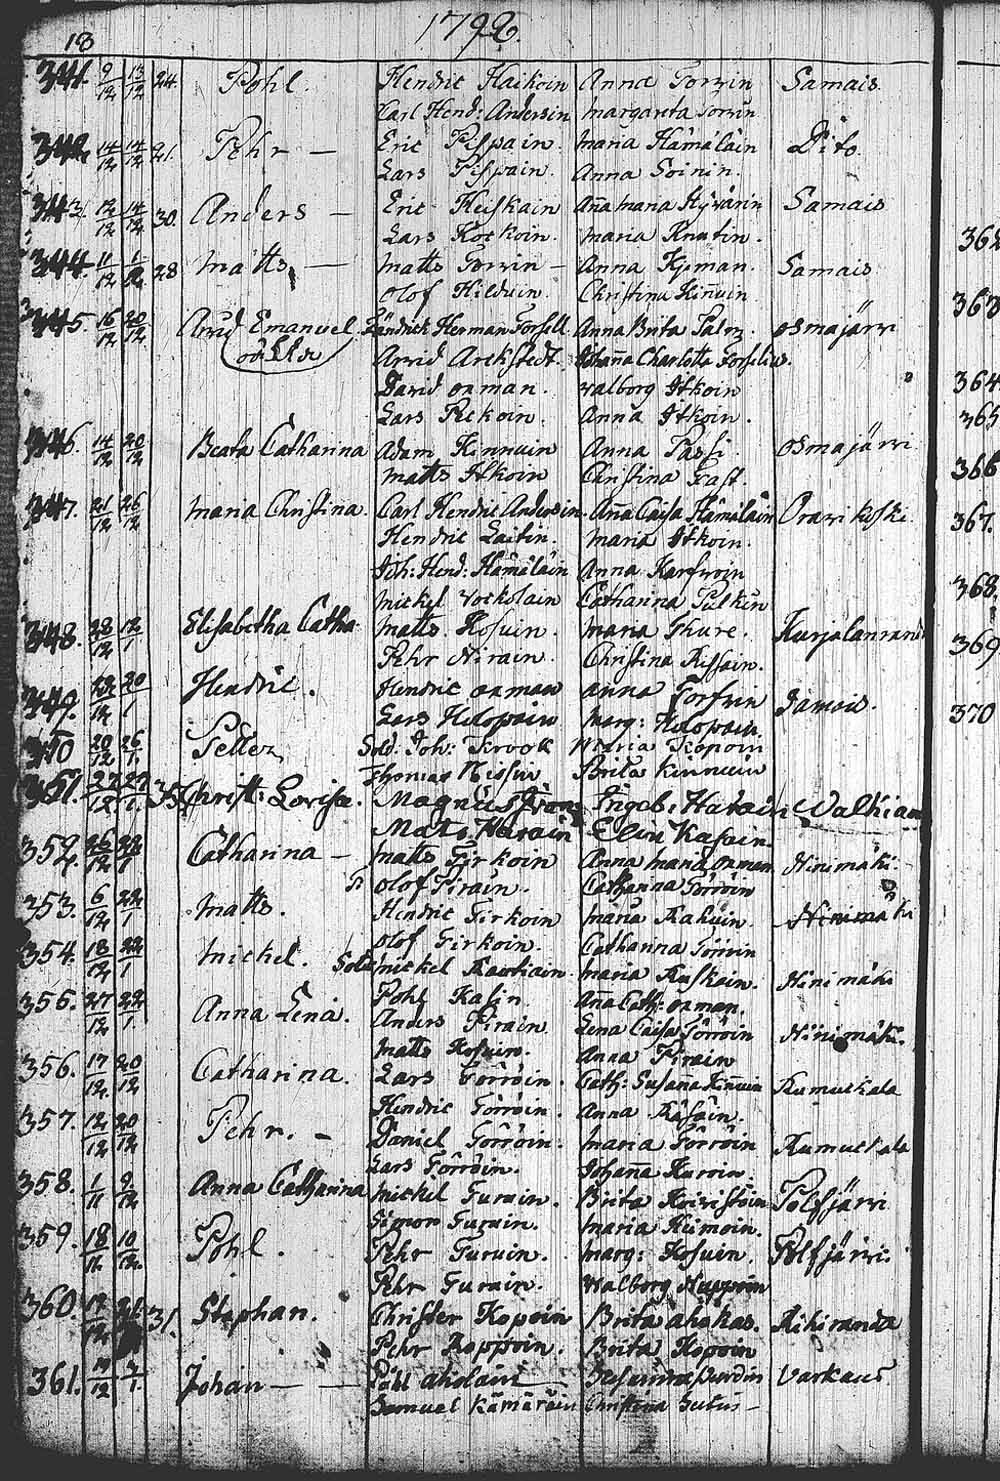 18
1792.
341. 9/12 13/12 24. Pohl. Hendric Haikoin Anna Torvin Samais.
Carl Hend: Andersin margareta Torvin
342. 14/12 14/12 21. Pehr — Eric Pispain. maria Hämäläin Dito.
Lars Pispain. Anna Soinin.
343. 12/12 14/12 30. Anders — Eric Heiskain Anna maria Hyvärin Samais
Lars Kockoin. maria Knutin.
344. 11/12 28 matts, — matts Torvin — Anna Kyman. Samais
Olof Hilduin. Christina Kinnuin
345. 16/12 20/12 Arvid Emanuel. Händrick Herman Forsell. Anna Brita Palm. osmajärvi
oäckta Arvid Arckstedt. Johanna Charlotta Forselius.
David onman. valborg Itkoin
Lars Pickoin. Anna Itkoin.
346. 14/12 20/12 Beata Catharina Adam Kinnuin Anna Passi. osmajärvi
matts Itkoin Christina Fast.
347. 21/12 26/12 maria Christina. Carl Hendric Andersin. Anna Caisa Hämäläin Oravikoski.
Hendric Laitin. maria Itkoin.
Joh: Hend: Hämäläin Anna Karfvoin
mickel Catharina Pulkin
348. 28/12 12/1 Elisabetha Catha matts Kosuin. maria Thure. Kurjalanranda
Pehr Nirain. Christina Rissain.
349. 22/12 20/1 Hendric. Hendric onman anna Torfvin Samais.
Lars Holopain marg: Holopain.
350 20/12 26/1. Petter, Sold. Joh: Krook Maria Kopoin
Thomas Nissin Brita Kinnuin
351. 27/12 27/1. Christ: Lovisa. Magnus Ingeb: Hatain
Mats Hatain Elin Kasain.
352. 26/12 22/1 Catharina — matts Tirkoin Anna maria onman Hinimäki
olof Pirain. Catharina Törröin
353. 6/12 22/1 matts. Hendric Tirkoin maria Kahuin. Hinimäki
olof Tirkoin. Catharina Torrin
354. 18/12 22/1 mickel. Sold: mickel Rautiain. maria Ruskain. Hinimäki
Pohl Kasin Anna Cath: onman.
355. 27/12 22/1 Anna Lena. Anders Pirain. Lena Caisa Törröin Hinimäki.
matts Kosuin. Anna Pirain
356. 17/12 20/12 Catharina. Lars Törröin. Cath: Susanna Kinnuin Kumuckala
Hendric Törröin. Anna Räsäin.
357. 12/12 20/12 Pehr. — Daniel Törröin. maria Törröin Kumuckala
Lars Törröin. Johana Huroin.
358. 1/11 9/12 Anna Catharina mickel Turuin. Brita Koivistoin Polsjärvi
Simon Turuin. maria Kiimoin.
359. 18/11 10/12. Pohl. Pehr Turuin. marg: Kosuin. Polsjärvi.
Pehr Turuin. Walborg Huppoin
360. 19/12 31. Stephan. Christer Kopoin Brita ahokas. Rihiranda
Pehr Koppoin. Brita Kopoin
361. 19/12 7/1. Johan — Påll aholain Varkaus
Samuel Kämäräin Christina Sutus —
362
363
364.
365
366
367.
368.
369
370